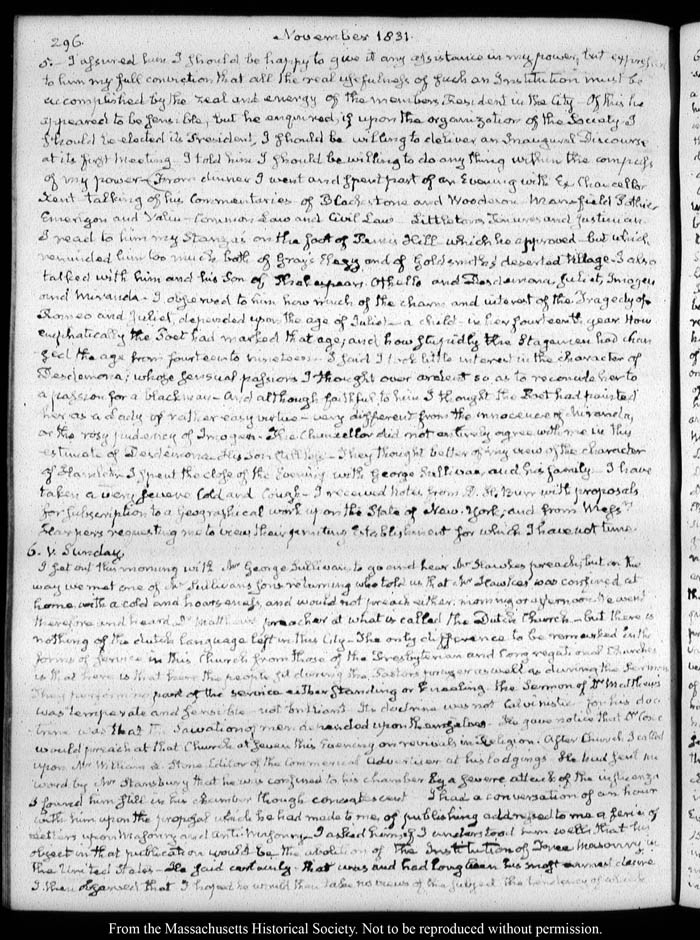 296.
November 1831.
5.- I assured him I should be happy to give it any assistance in my power, but expressed
to him my full conviction that all the real usefulness of such an Institution must be
accomplished by the zeal and energy of the members Resident in the City - Of this he
appeared to be sensible, but he enquired, if upon the organization of the Society I
should be elected its President, I should be willing to deliver an Inaugural Discourse
at its first meeting - I told him I should be willing to do any thing within the compass
of my power - From dinner I went and spent part of an Evening with Ex Chancellor
Kent - talking of his Commentaries - of Blackstone and Woodeson - Mansfield Pothier
Emerigon and Valin - Common Law and Civil Law - Littletons Tenures and Justinian
I read to him my Stanzas on the foot of Penns Hill which he approved - but which
reminded him too much both of Gray's Elegy and of Goldsmiths deserted Village - I also
talked with him and his Son of Shakespear. Othello and Desdemona, Juliet, Imogen
and Miranda - I observed to him how much of the charm and interest of the Tragedy of
Romeo and Juliet, depended upon the age of Juliet - a child - in her fourteenth year How
emphatically the Poet had marked that age; and how stupidly the Stagemen had chan
ged the age from fourteen to nineteen - I said I took little interest in the character of
Desdemona; whose sensual passions I thought over ardent so as to reconcile her to
a passion for a black man - And although faithful to him I thought the Poet had painted
her as a Lady of rather easy virtue - very different from the innocence of Miranda,
or the rosy pudency of Imogen - The Chancellor did not entirely agree with me in this
estimate of Desdemona. His Son still less - They thought better of my view of the character
of Hamlet - I spent the close of the Evening with George Sullivan, and his family - I have
taken a very severe Cold and Cough - I received notes from D. H. Burr with proposals
for subscription to a Geographical work upon the State of New-York, and from Messrs
Harpers requesting me to view their printing Establishment for which I have not time
6. V. Sunday.
I set out this morning with Mr George Sullivan to go and hear Mr Hawkes preach; but on the
way we met one of Mr Sullivans sons returning who told us that Mr Hawkes was confined at
home with a cold and hoarseness, and would not preach either morning or afternoon. We went
therefore and heard Dr Matthews preacher at what is called the Dutch Church - but there is
nothing of the dutch language left in this City - The only difference to be remarked in the
forms of service in this Church from those of the Presbyterian and Congregational Churches
is that there is that here the people sit during the Pastors prayer as well as during the Sermon
They perform no part of the service either standing or kneeling. The Sermon of Dr Matthews
was temperate and sensible - not brilliant. Its doctrine was not Calvinistic - for his doc
trine was that the Salvation of men depended upon themselves. He gave notice that Dr Cox
would preach at that Church at seven this Evening on revivals in Religion. After Church I called
upon Mr William L. Stone Editor of the Commercial Advertiser at his lodgings. He had sent me
word by Mr Stansbury that he was confined to his chamber by a severe attack of the influenza
I found him still in his chamber though convalescent I had a conversation of an hour
with him upon the proposal which he had made to me, of publishing addressed to me a series of
letters upon Masonry and Anti Masonry - I asked him if I understood him well that his
object in that publication would be the abolition of the Institution of Free Masonry in
the United States - He said certainly. that was and had long been his most earnest desire
I then observed that I hoped he would then take no views of the subject the tendency of which
From the Massachusetts Historical Society. Not to be reproduced without permission.